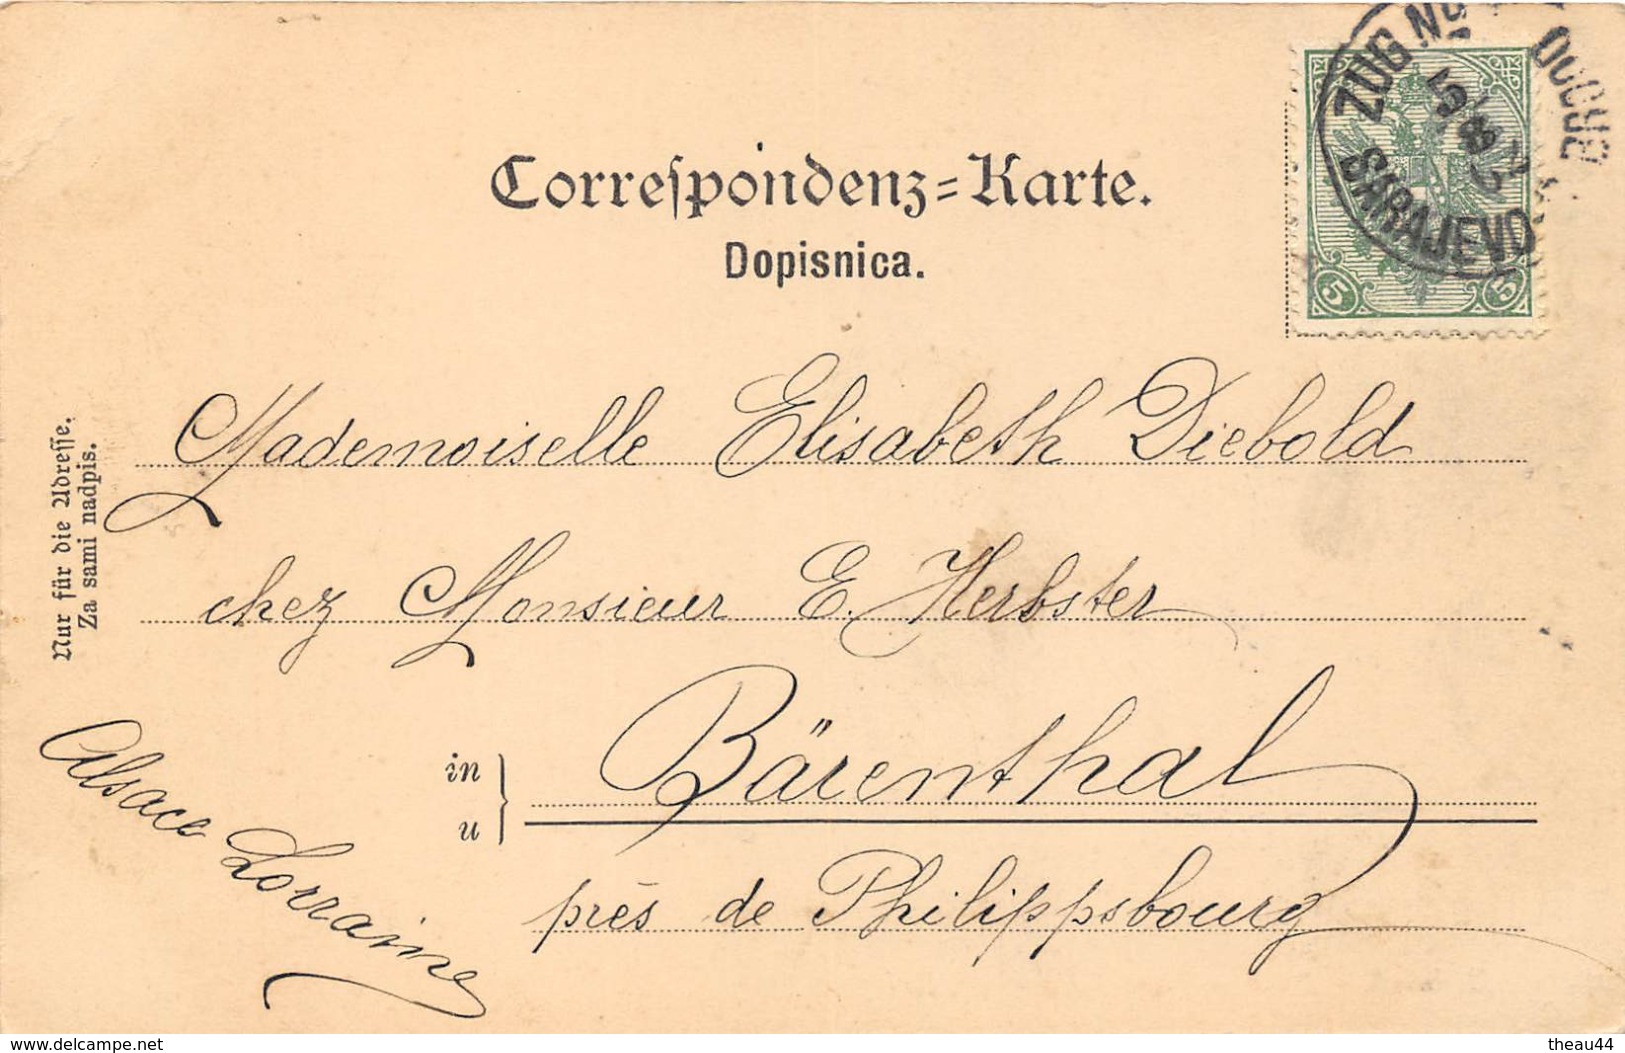 Correspondenz=Karte.
Dopisnica.
ZUG Nº
SARAJEVO
5 5
Nur für die Adresse.
Za sami nadpis.
Mademoiselle Elisabeth Diebold
chez Monsieur E. Herbster
in
u
Bärenthal
près de Philippsbourg
Alsace Lorraine
www.delcampe.net
theau44